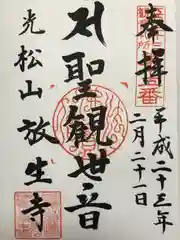 奉拝
平成二十三年
二月二十一日
聖観世音
光松山
放生寺